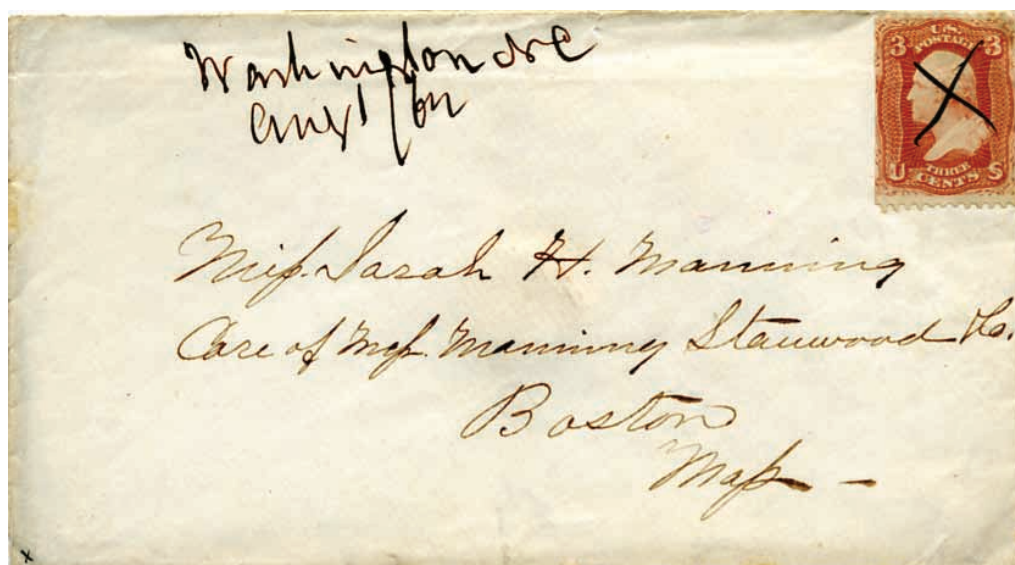 Washington DC
Aug 1/64
3 U.S. 3
POSTAGE
U THREE S
CENTS
Miss Sarah H. Manning
Care of Mess. Manning Stanwood & Co.
Boston
Mass -